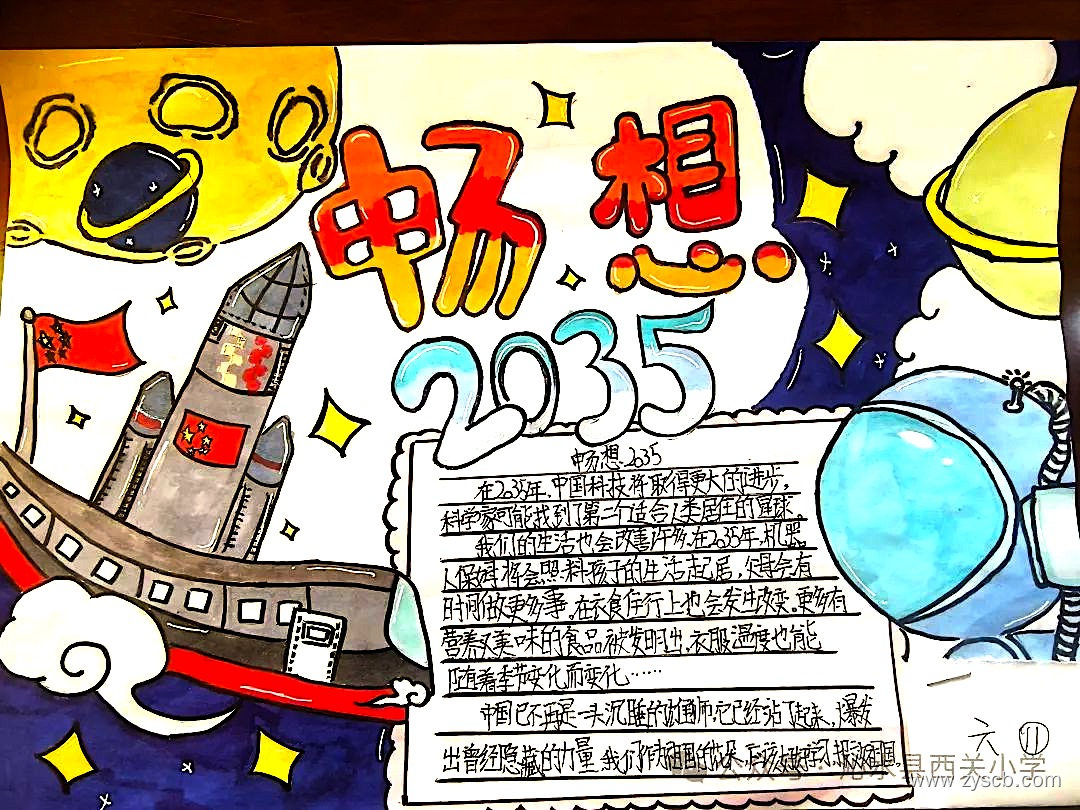 畅想
2035
畅想2035
在2035年,中国科技将取得更大的进步,
科学家可能找到了第二个适合人类居住的星球。
我们的生活也会改善许多,在2035年,机器
人保姆将会照料孩子的生活起居,父母会有
时间做更多事。在衣食住行上也会发生改变。更多有
营养又美味的食品被发明出,衣服温度也能
随着季节变化而变化……
中国已不再是一头沉睡的雄狮,它已经站了起来,爆发
出曾经隐藏的力量。我们作为祖国的花朵,应该好好学习,报效祖国。
县西关小学
www.zyscb.com
六 11